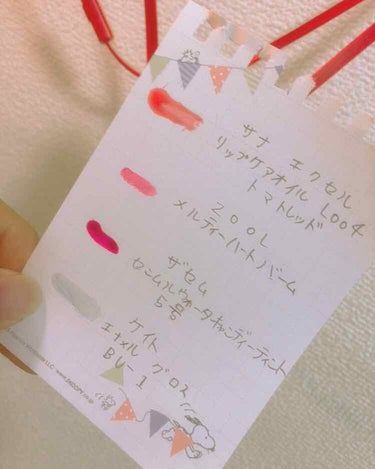 サナ エクセル
リップケアオイル LOO4
トマトレッド
ZOOL
メルティーハートバーム
ザセム
センムルウォータキャンディーティント
5号
ケイト
エナメル グロス
BU-1